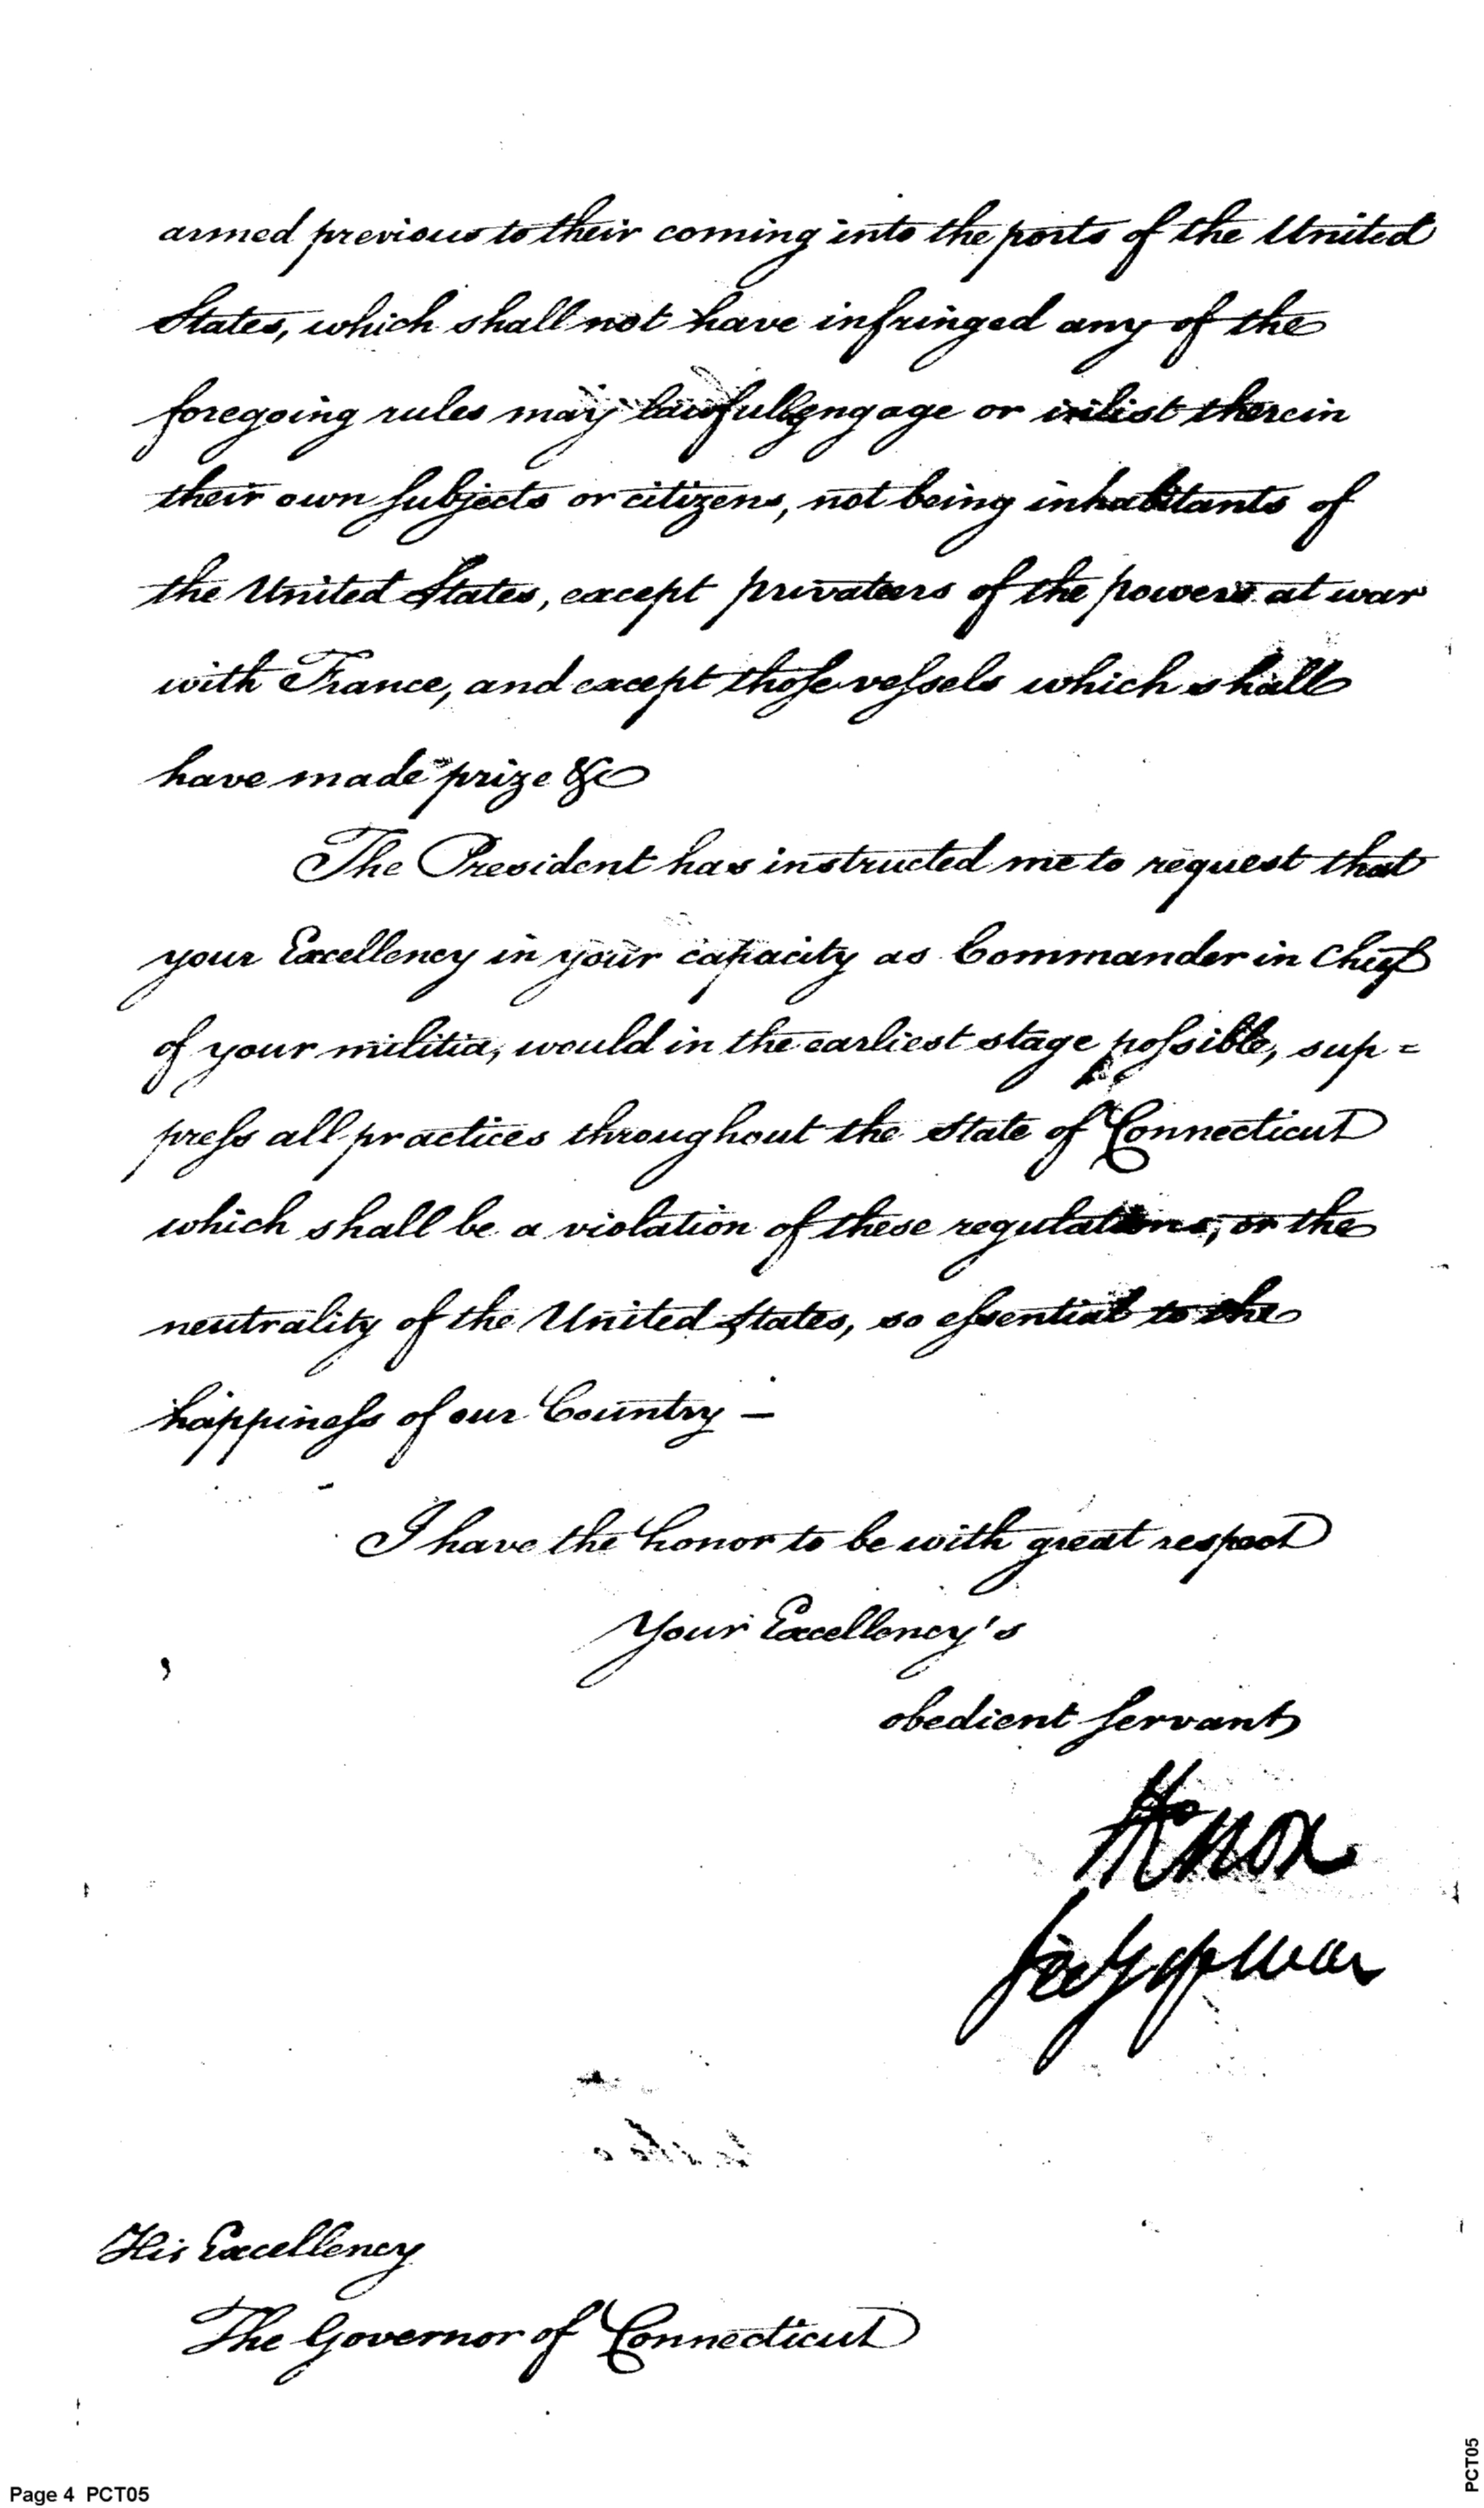 armed previous to their coming into the ports of the United
States, which shall not have infringed any of the
foregoing rules may lawfully engage or inlist therein
their own subjects or citizens, not being inhabitants of
the United States, except privateers of the powers at war
with France, and except those vessels which shall
have made prize &c
The President has instructed me to request that
your Excellency in your capacity as Commander in Chief
of your militia, would in the earliest stage possible, sup=
press all practices throughout the State of Connecticut
which shall be a violation of these regulations, or the
neutrality of the United States, so essential to the
happiness of our Country —
I have the honor to be with great respect
Your Excellency's
obedient servant
H Knox
Secy of War
His Excellency
The Governor of Connecticut
Page 4 PCT05
PCT05